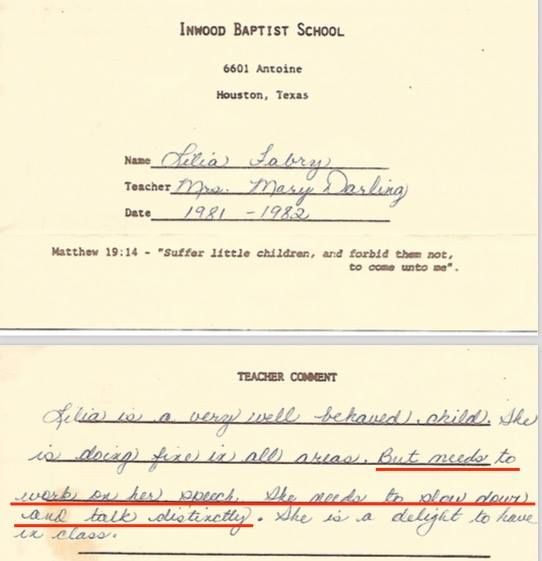 INWOOD BAPTIST SCHOOL
6601 Antoine
Houston, Texas
Name Lilia Fabry
Teacher Mrs. Mary Darling
Date 1981 - 1982
Matthew 19:14 - "Suffer little children, and forbid them not,
to come unto me".
TEACHER COMMENT
Lilia is a very well behaved child. She
is doing fine in all areas. But needs to
work on her speech. She needs to slow down
and talk distinctly. She is a delight to have
in class.